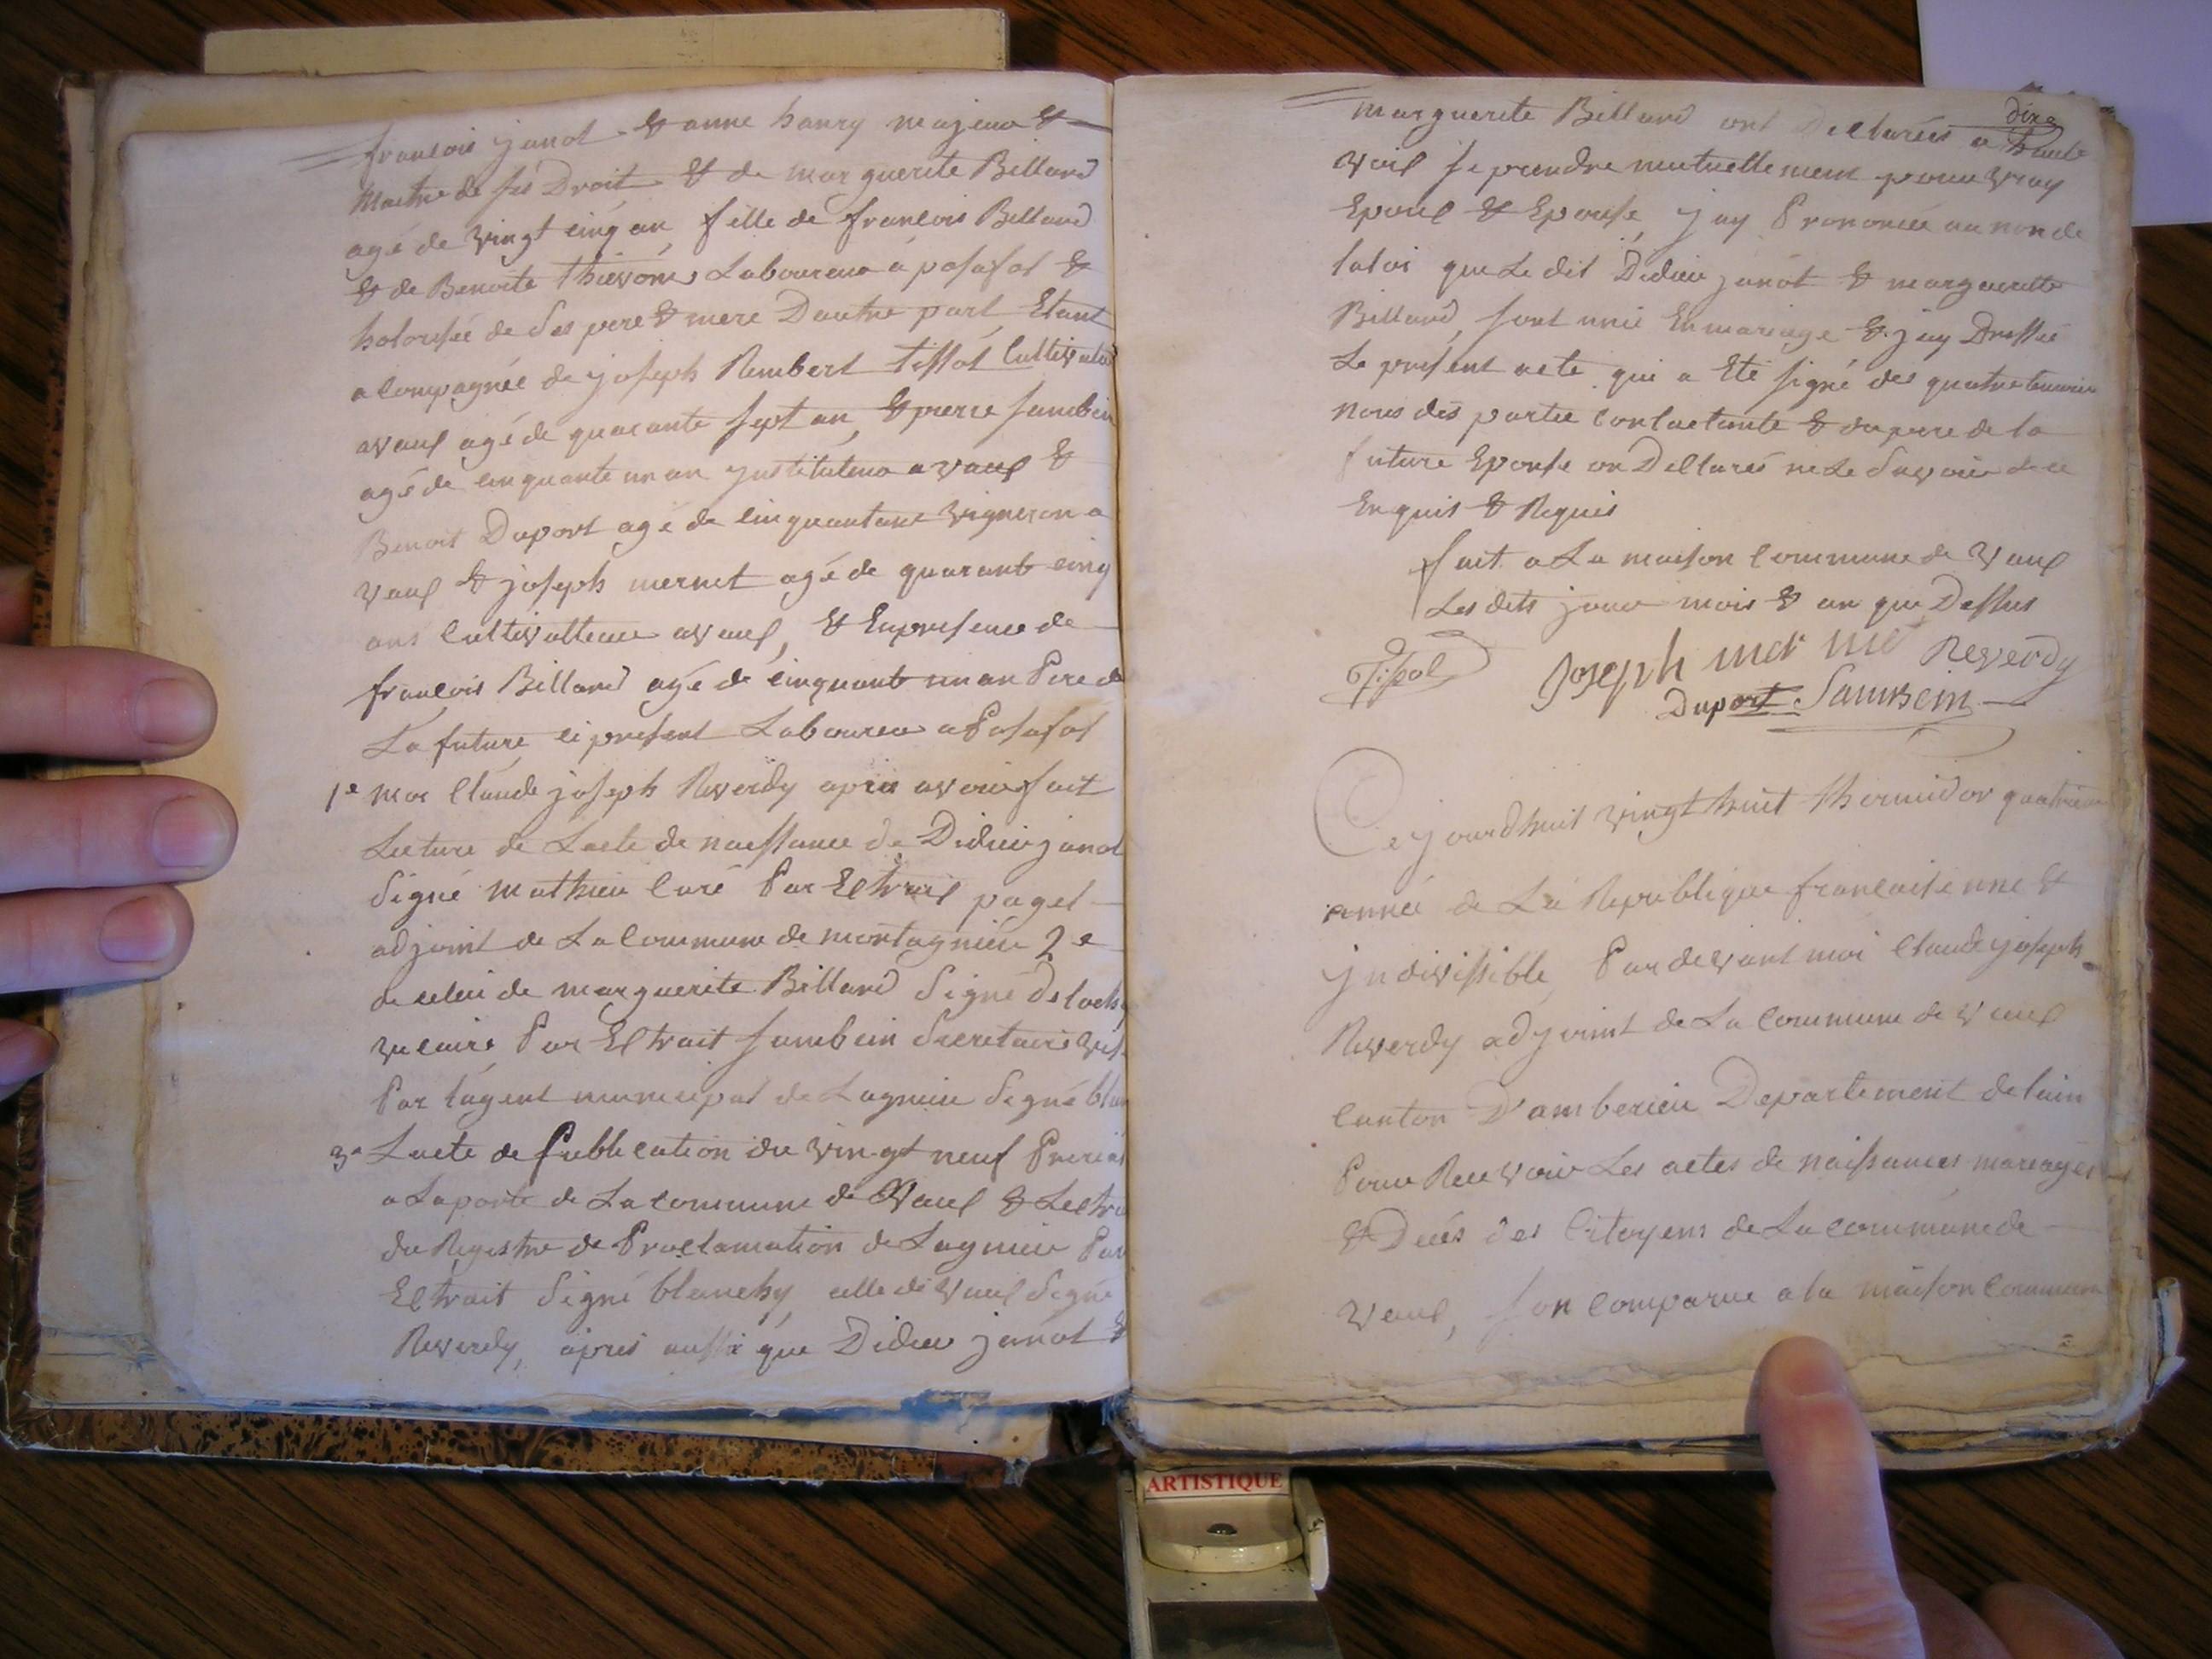 françois janot & anne hanry majeur &
Maitre de ses Droit & de marguerite Billard
agé de vingt cinq an, fille de françois Billard
& de Benoite thievons Laboureur á posafol &
hotorisée de ses pere & mere Dautre part, Etant
acompagnée de joseph Rembert tissot Cultivateur
a vaux agé de quarante sept an, & pierre sambein
agé de cinquante un an jnstituteur a vaux &
Benoit Duport agé de cinquantan vigneron a
vaux & joseph mernet agé de quarante cinq
ans Cultivatteur a vaux, & En presence de
françois Billard agé de cinquante un an Pere de
La future, ci present Laboureur a Posafol
1e moi Claude joseph Reverdy après avoir fait
Lecture de Lacte de naissance de Didier janot
Signé mathieu Curé Par Extrait paget
adjoint de La Commune de montagnieu 2e
de celui de marguerite Billard Signé
vicaire Par Extrait sambein Secretaire
Par lagent municipal de Lagnieu Signé
3e Lacte de Publication du vingt neuf
a La porte de La commune de Vaux &
du Registre de Proclamation de Lagnieu Par
Extrait Signé blanchy, celle de vaux Signé
Reverdy, après aussi que Didier janot &
dixe
marguerite Billard ont Declarées a haute
voix se prendre mutuellement pour vray
Epoux & Epouse, j ay Prononcée au nom de
la loi que Le dit Didier janot & margueritte
Billard, sont unie En mariage & jay Dressée
Le present acte qui a Eté signé des quatre temoin
nous des partie Contactante & du pere de la
future Epouse on Dellarés ne Le Savoir de ce
Enquis & Requis
fait a La maison Commune de vaux
Les dits jour mois & an que Dessus
Tissot Joseph mer net Reverdy
Duport Sambein
Cejourdhuit vingt huit thermidor quatrieme
année de La Republique francaise une &
jndivissible, Par devant moi Claude joseph
Reverdy adjoint de La Commune de vaux
Canton D'amberieu Departement de lain
Pour Recevoir Les actes de naissances mariages
& Decés des Citoyens de La commune de
vaux, son Comparue a la maison Commune
ARTISTIQUE